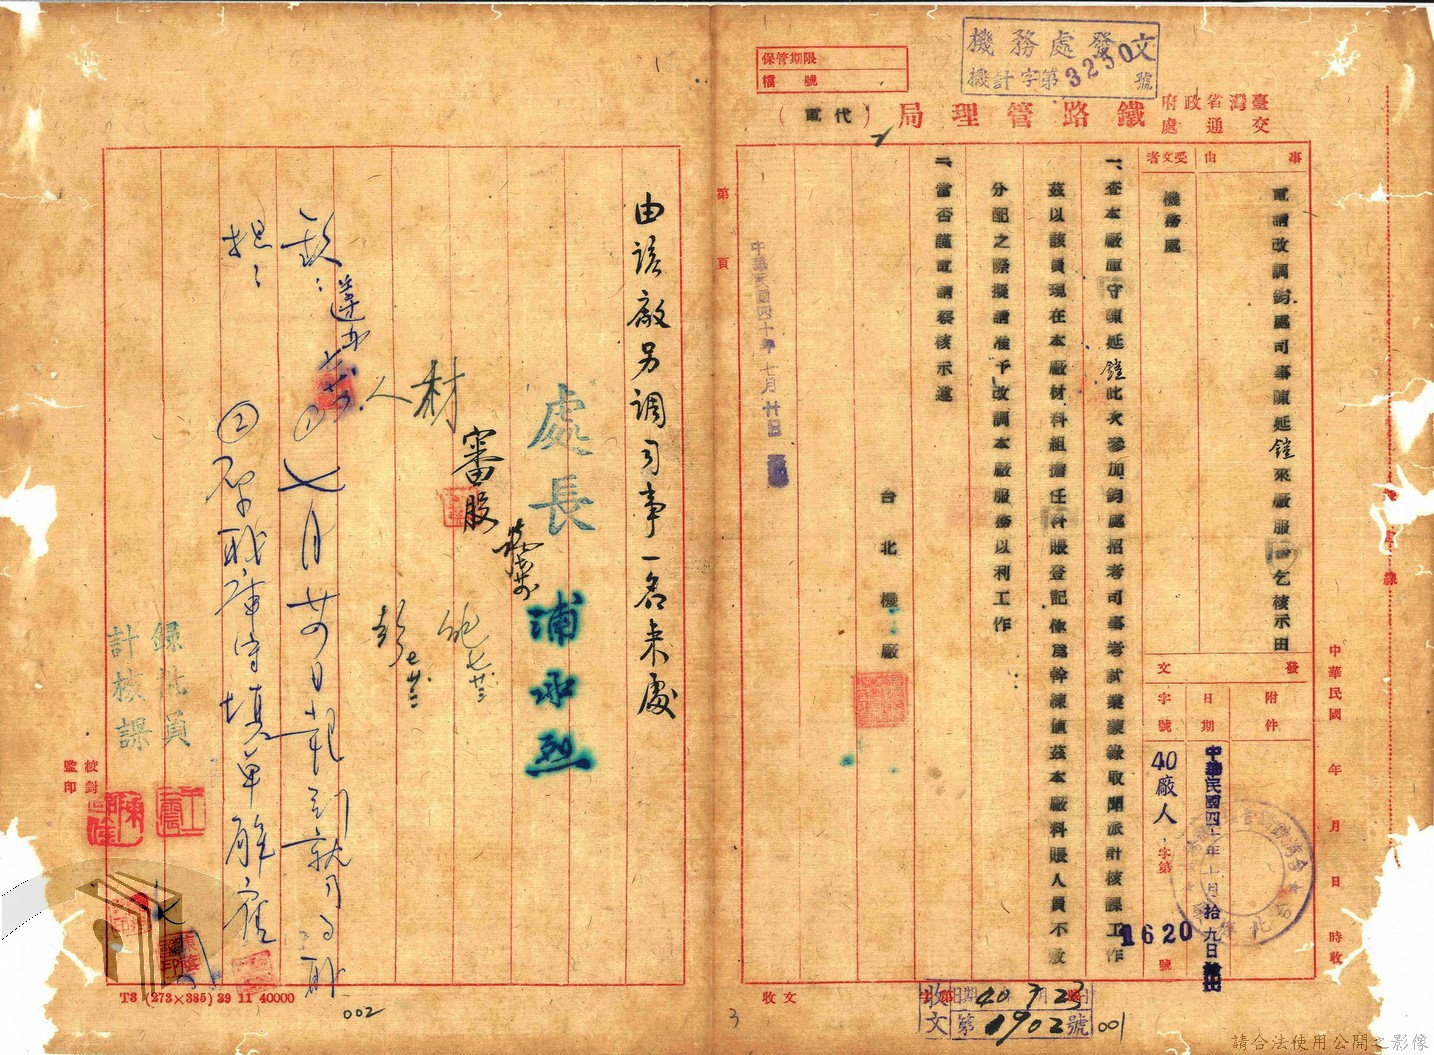 機務處發文
機計字第3230號
保管期限
檔號
臺灣省政府交通處
鐵路管理局
(代電)
事由
電請改調鈞處司事陳延鎧來廠服務乞核示由
受文者
機務處
發文
附件
日期
中華民國四十年七月拾九日
字號
40廠人字第1620號
一、查本廠庫守陳延鎧此次參加鈞處招考司事考試業蒙錄取閱派計核課工作
茲以該員現在本廠材料組擔任料賬登記依為幹練值茲本廠料賬人員不敷
分配之際擬請准予改調本廠服務以利工作
二、當否謹電請察核示遵
台北機廠
中華民國四十年七月廿日
第頁
中華民國年月日時收
收文
收文
日期40 7 23
第1902號
001
3
由該廠另調司事一名來處
處長浦承烈
審股
材
人
彭
七廿三
七廿三
遵办
①七月廿四日報到就司事職
②原職庫守填單解雇
錄批員
計核課
校對
監印
T3 (273×385) 39 11 40000
002
請合法使用公開之影像